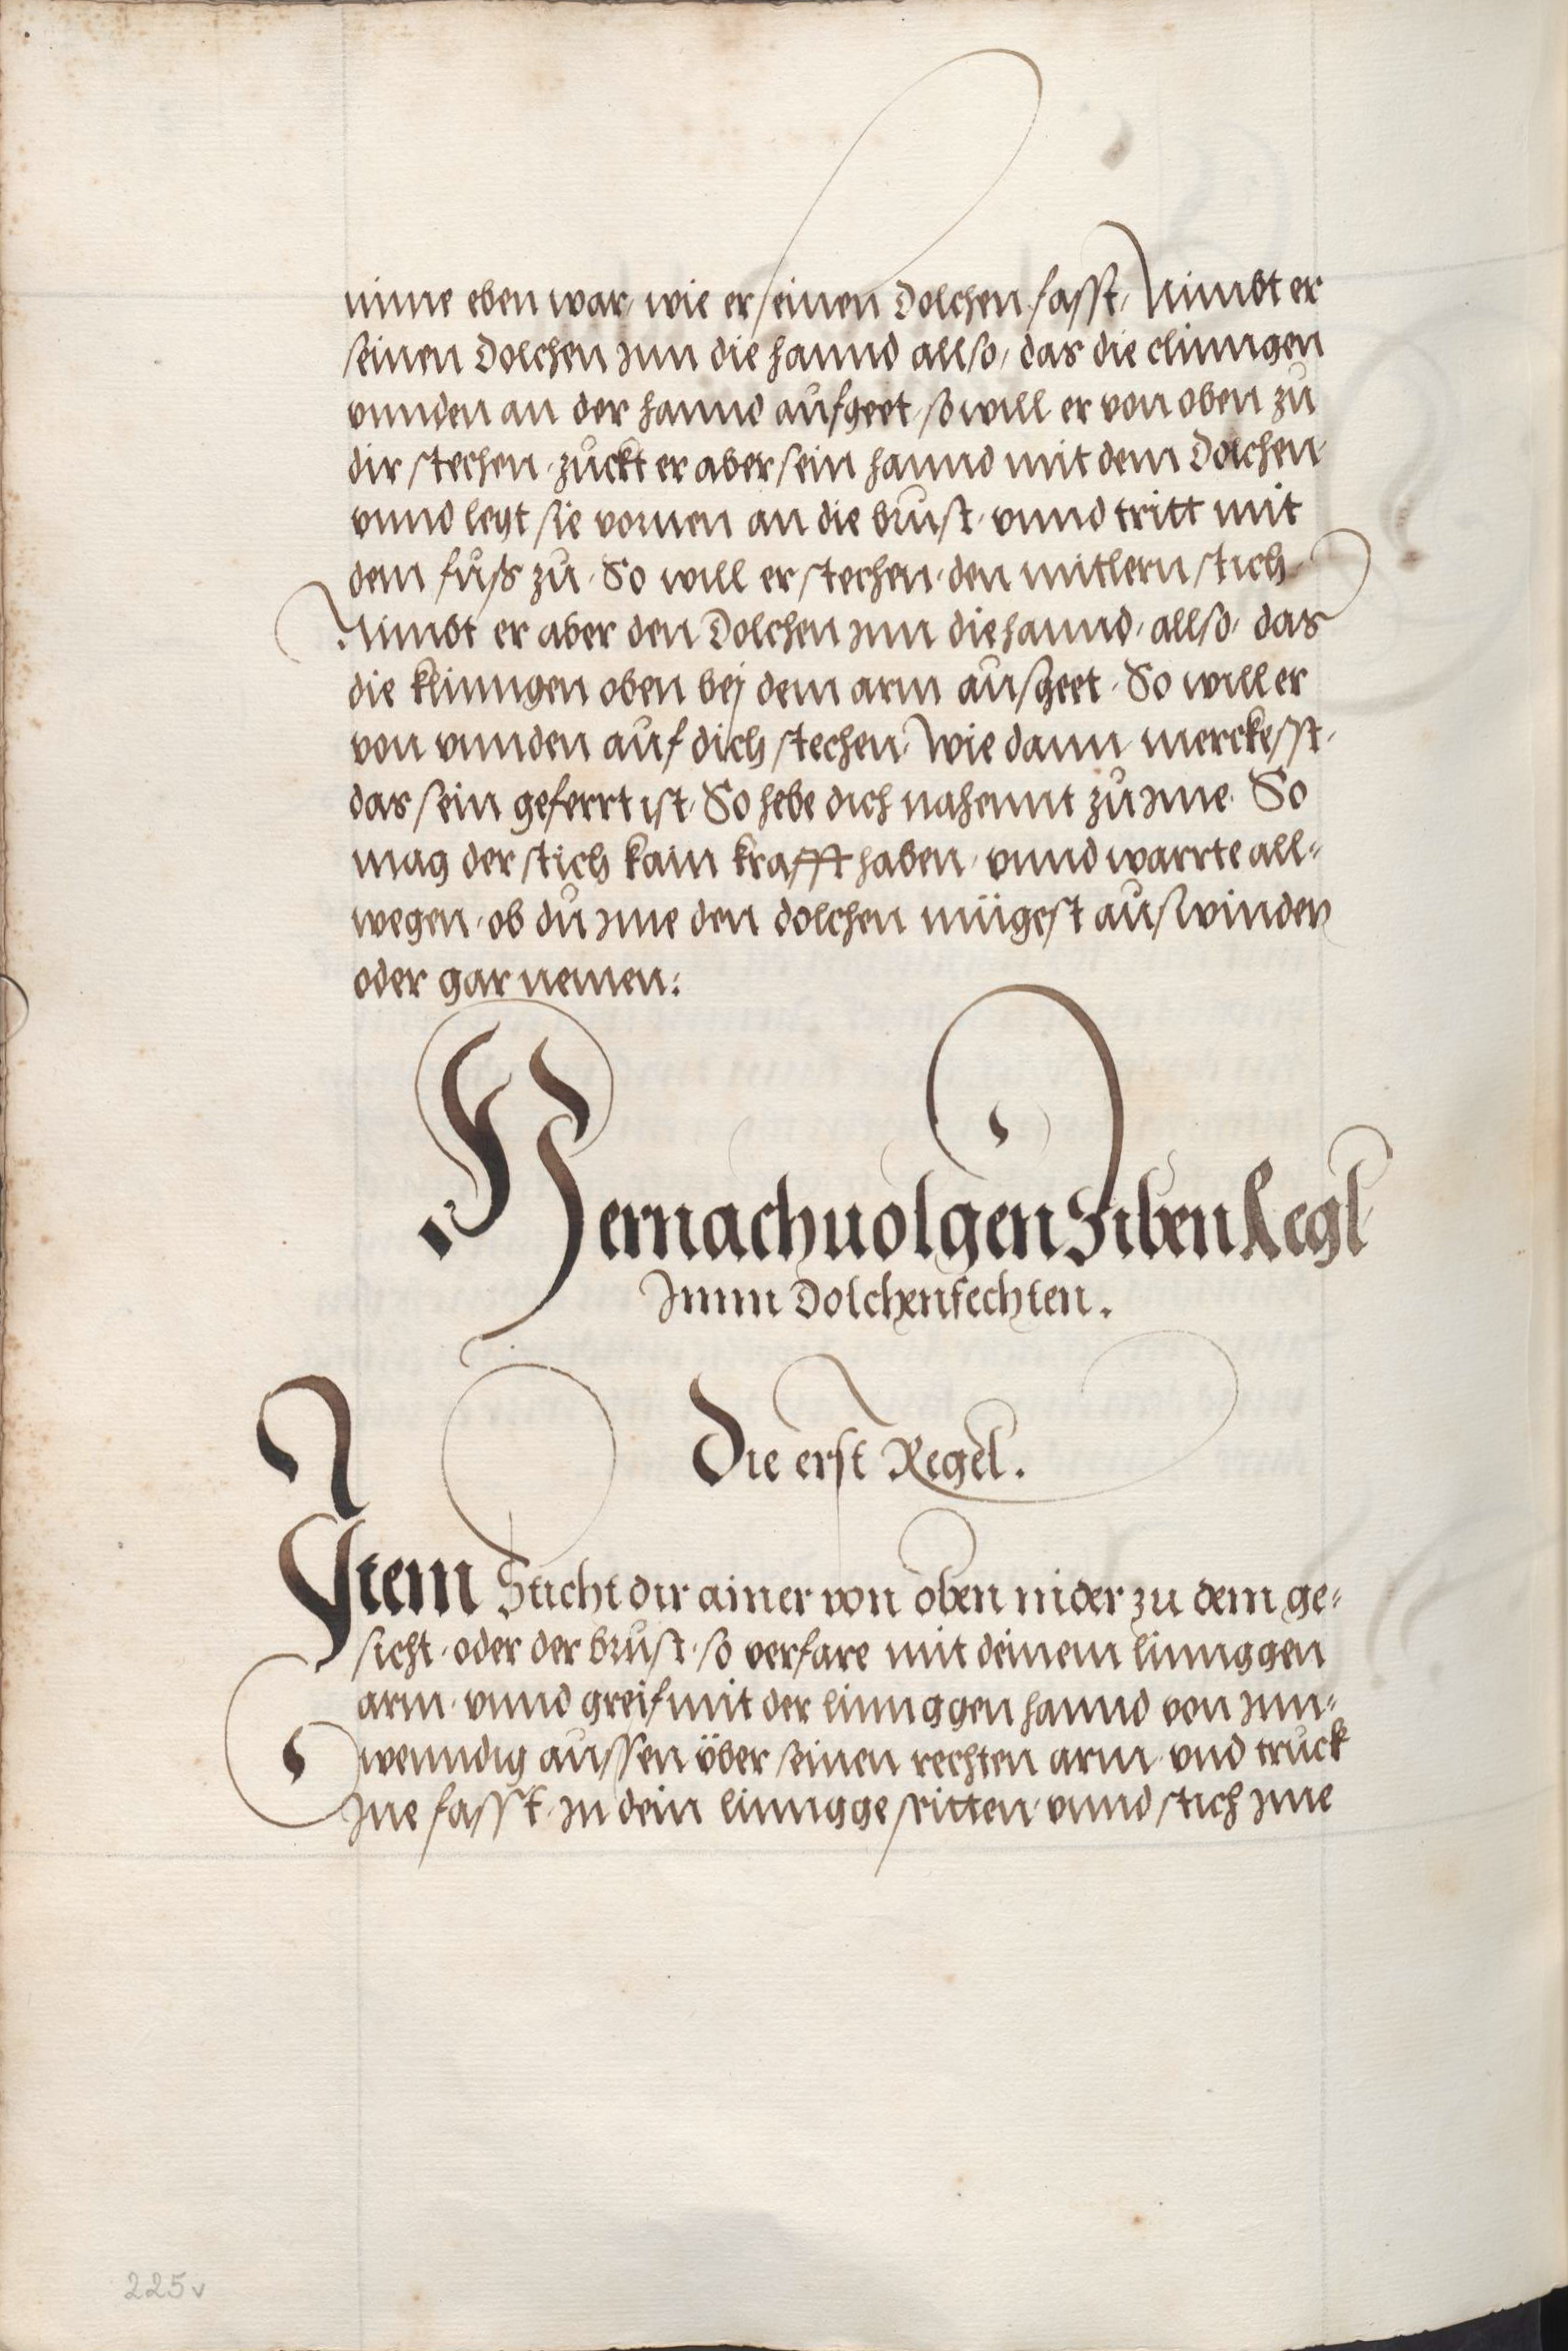 nime eben war, wie er seinen Dolchen fasst, Nimbt er
seinen Dolchen jnn die hannd allso, das die clinngen
vnnden an der hannd ausgeet, so will er von oben zu
dir stechen, zuckt er aber sein hannd mit dem Dolchen,
vnnd legt sie vornen an die brust, vnnd tritt mit
dem fuß zu, So will er stechen, den mitlern stich
Nimbt er aber den Dolchen jnn die hannd, allso, das
die klinngen oben bej dem arm ausgeet, So will er
von vnnden auf dich stechen, Wie dann merckesst,
das sein geferrt ist, So hebe dich nahennt zu jme, So
mag der stich kain krafft haben, vnnd warrte all=
wegen, ob du jme den dolchen mügest auswinden
oder gar nemen:
Hernachuolgen Siben Regl
Jnnn Dolchenfechten.
Die erst Regel.
Jtem Sticht dir ainer von oben nider zu dem ge=
sicht, oder der brust, so verfare mit deinem linnggen
arm, vnnd greif mit der linnggen hannd von jnn=
wenndig aussen über seinen rechten arm, vnd truck
jne fasst, jn dein linngge seitten, vnnd stich jme
225v